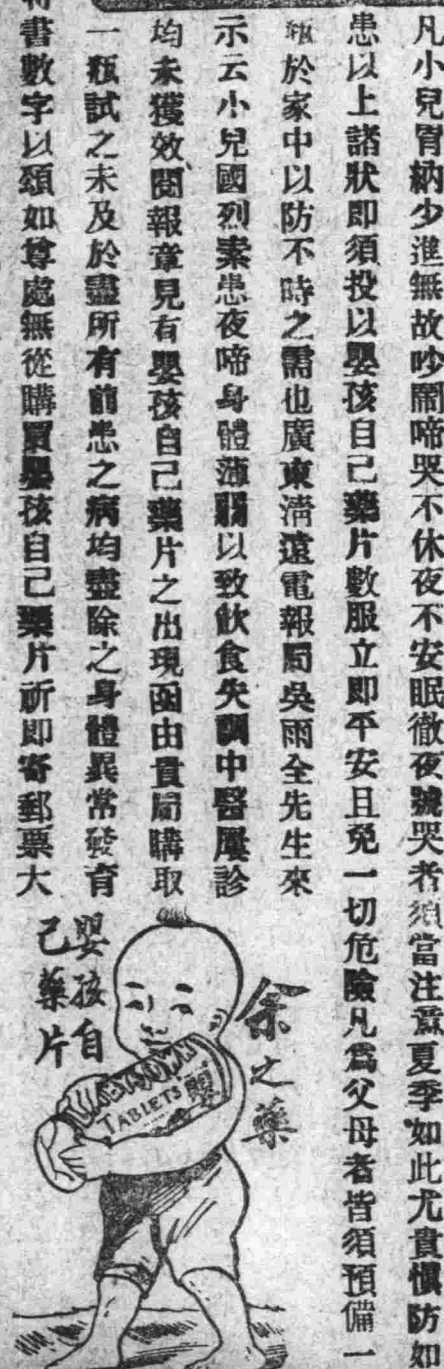 凡小兒胃納少進無故吵鬧啼哭不休夜不安眠徹夜號哭者須當注意夏季如此尤貴愼防如
患以上諸狀卽須投以嬰孩自己藥片數服立卽平安且免一切危險凡爲父母者皆須預備一
瓶於家中以防不時之需也廣東淸遠電報局吳雨全先生來
示云小兒國烈素患夜啼身體薄弱以致飮食失調中醫屢診
均未獲效閱報章見有嬰孩自己藥片之出現函由貴局購取
一瓶試之未及於盡所有前患之病均盡除之身體異常發育
特書數字以頌如尊處無從購買嬰孩自己藥片祈卽寄郵票大
余之藥
嬰孩自
己藥片
BABY'S OWN
TABLETS
嬰